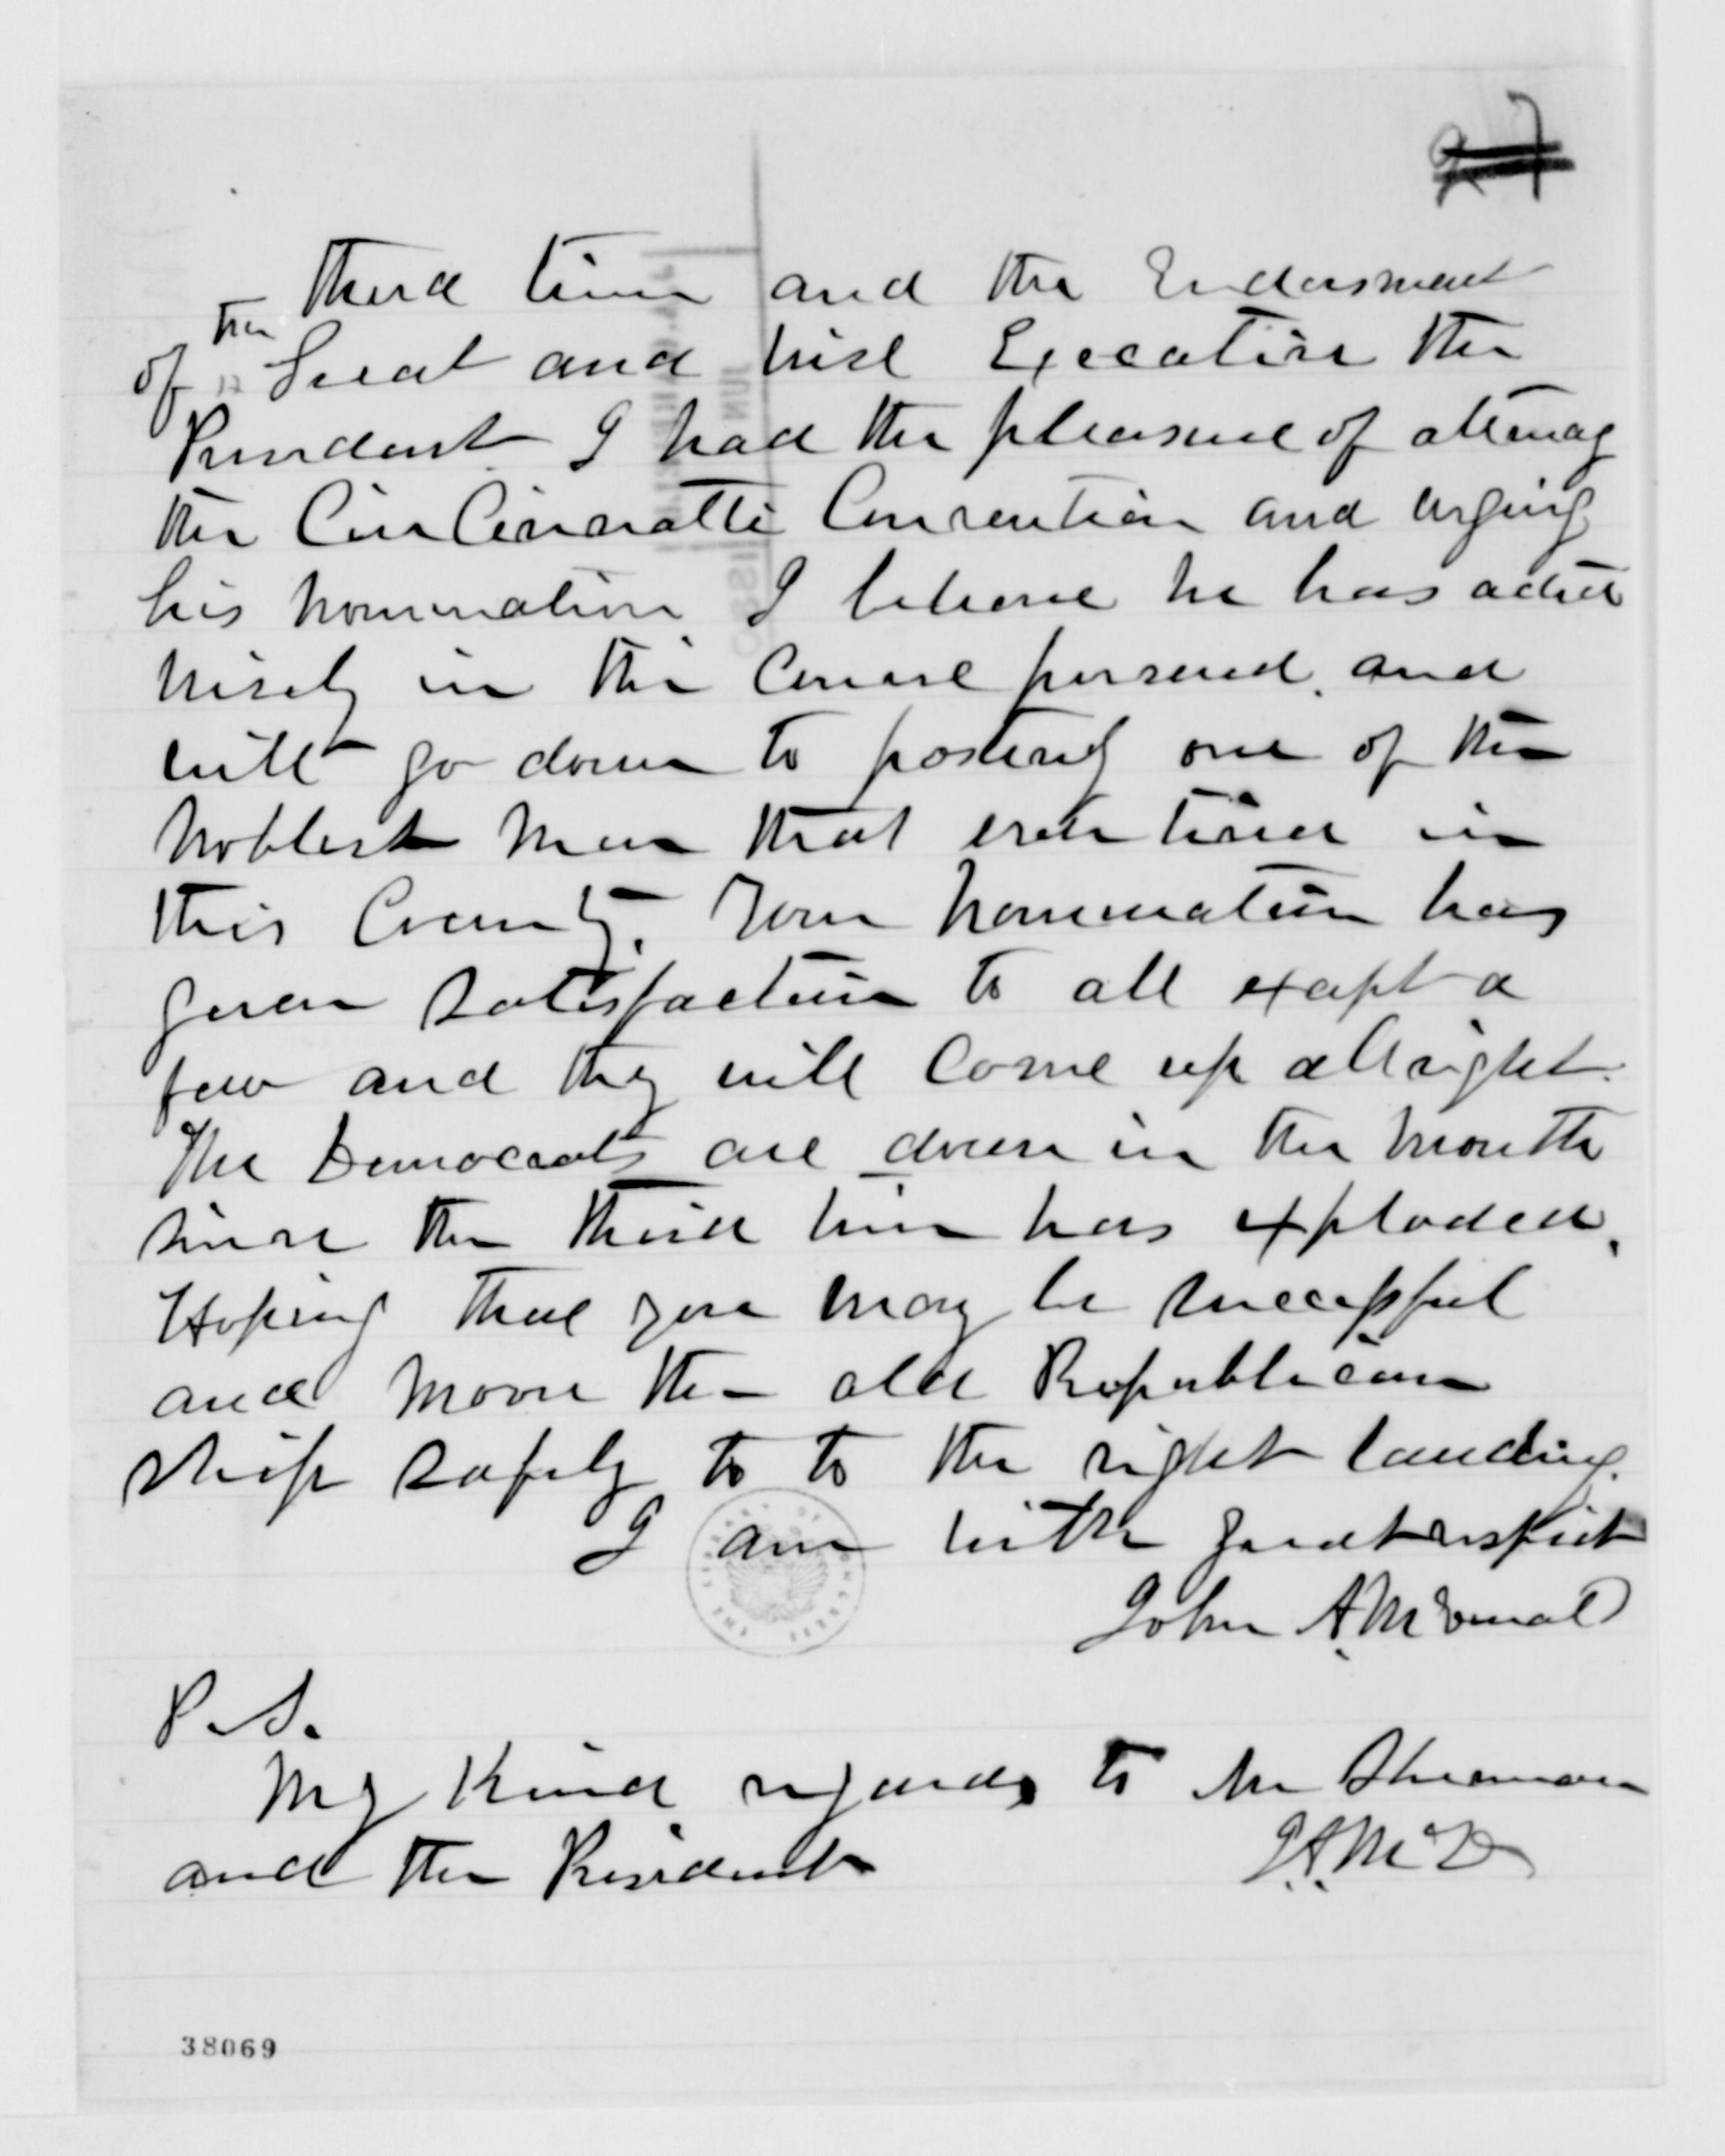 third term and the Endorsment
of the Great and wise Executive the
President. I had the pleasure of attending
the CinCinnatti Convention and urging
his nomination I believe he has acted
wisely in the Course persued. and
will go down to posterity one of the
noblest men that ever lived in
this Country. Your nomination has
given satisfaction to all except a
few and they will Come up allright.
The Democrats are down in the mouth
since the third term has exploded.
Hoping that you may be successful
and move the old Republican
ship safely to to the right landing.
I am with great respect
John A. McDonald
P.S.
My Kind regards to Mr Sherman
and the President
J.A. McD
38069